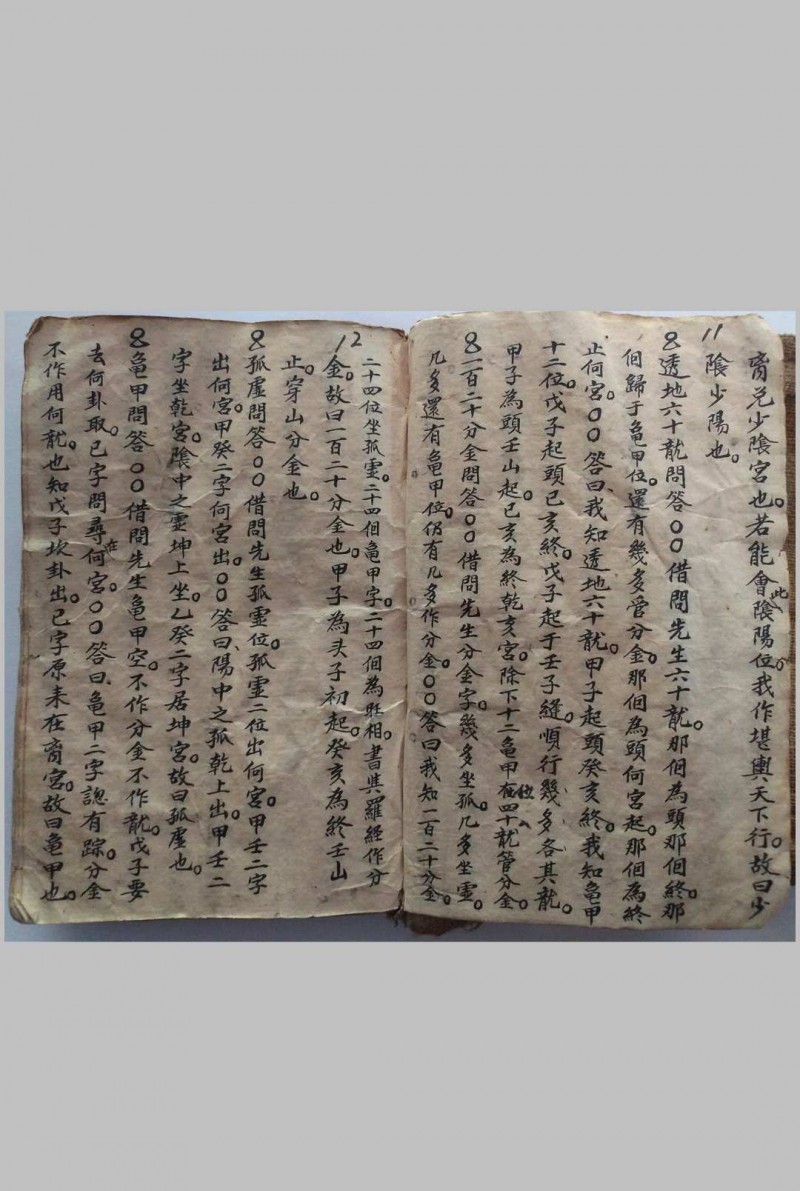 裔兌少陰宮也。若能會此陰陽位。我作堪輿天下行。故曰少
11
陰少陽也。
8透地六十龍問答〇〇借問先生六十龍。那個為頭那個終。那
個歸于亀甲位。還有幾多管分金。那個為頭何宮起。那個為終
止何宮。〇〇答曰、我知透地六十龍。甲子起頭癸亥終。我知亀甲
十二位。戊子起頭己亥終。戊子起于壬子縫。順行幾多各其龍。
甲子為頭壬山起。己亥為終乾亥宮。除下十二亀甲位。在四十八龍管分金。
8一百二十分金問答〇〇借問先生分金字。幾多坐孤。几多坐靈。
几多還有亀甲位。仍有几多作分金。〇〇答曰我知一百二十分金。
二十四位坐孤靈。二十四個亀甲字。二十四個為旺相。書與羅經作分
12
金。故曰一百二十分金也。甲子為头子初起。癸亥為終壬山
止。穿山分金也。
8孤虛問答〇〇借問先生孤靈位。孤靈二位出何宮。甲壬二字
出何宮。甲癸二字何宮出。〇〇答曰、陽中之孤乾上出。甲壬二
字坐乾宮。陰中之靈坤上坐。乙癸二字居坤宮。故曰孤虛也。
8亀甲問答〇〇借問先生亀甲空。不作分金不作龍。戊子要
去何卦取。己字問尋在何宮。〇〇答曰、亀甲二字認有踪。分金
不作用何龍。也知戊子坎卦出。己字原来在裔宮。故曰亀甲也。